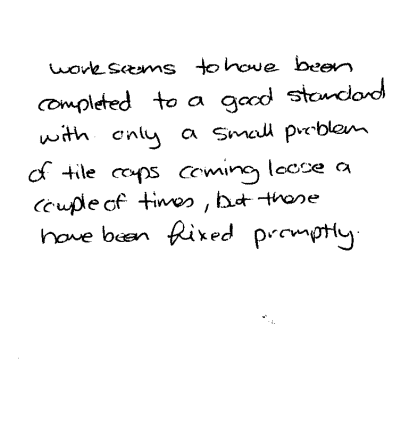 work seems to have been
completed to a good standard
with only a small problem
of tile caps coming loose a
couple of times, but these
have been fixed promptly.